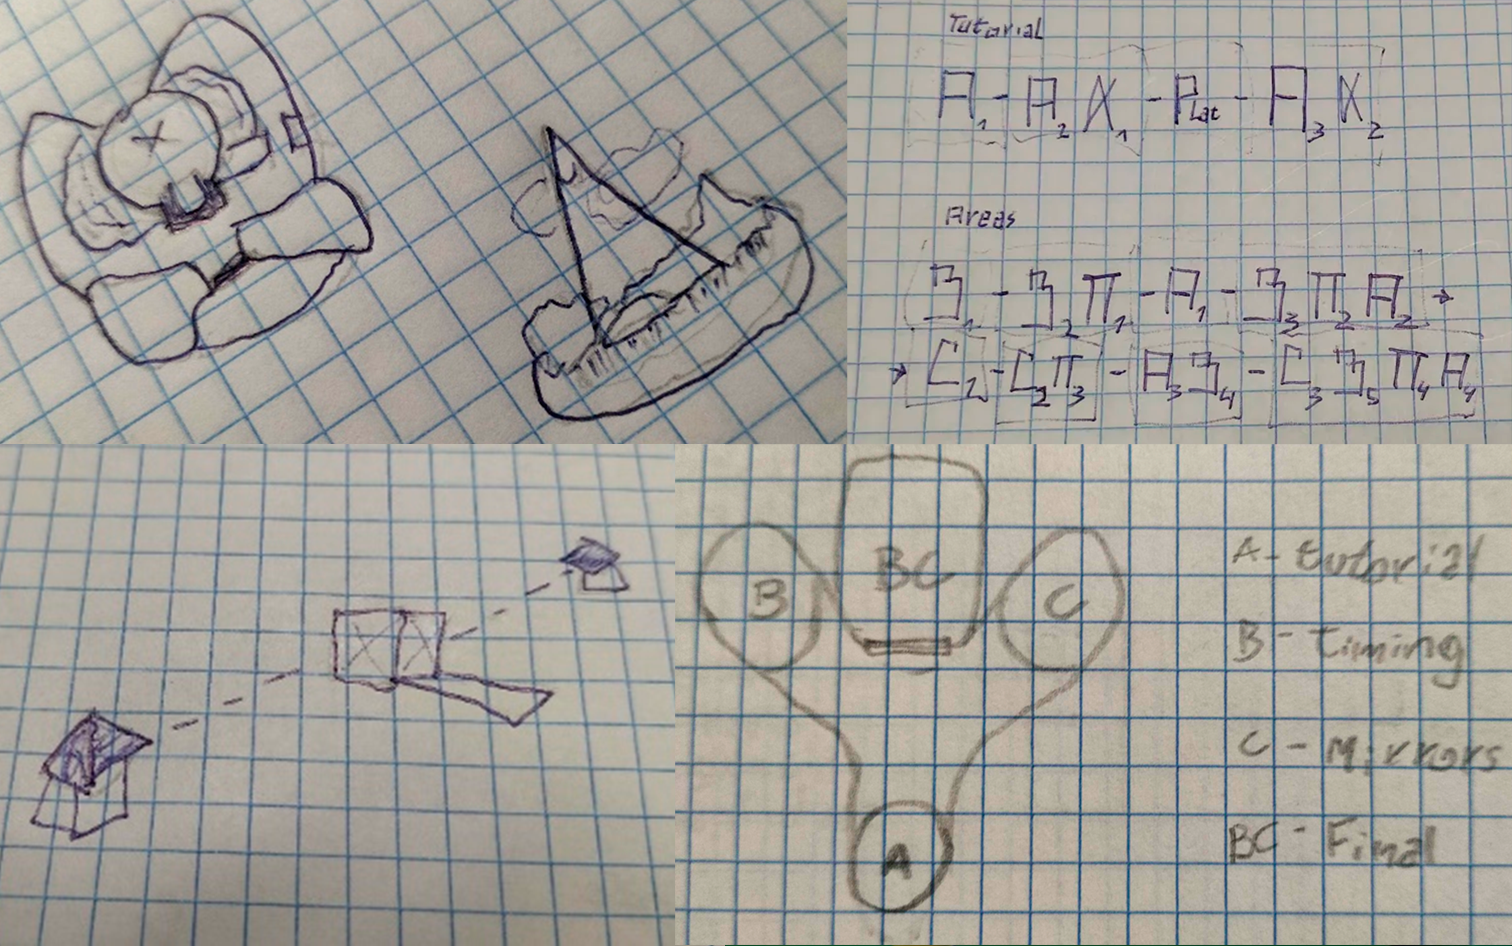 Tutorial
A₁ - A₂ X₁ - Plat - A₃ X₂
Areas
З₁ - З₂ П₁ - A₁ - З₃ П₂ A₂ →
→ C₁ - C₂ П₃ - A₃ З₄ - C₃ З₅ П₄ A₄
B BC C
A
A - tutorial
B - timing
C - Mirrors
BC - Final